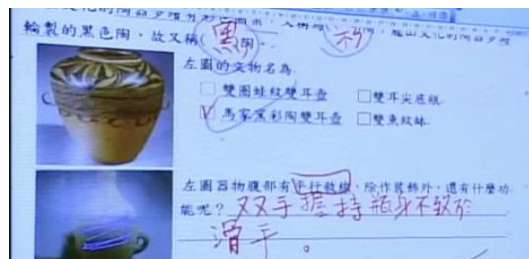 輪製的黑色陶，故又稱(黑)陶。
左圖的文物名為
□雙圈蛙紋雙耳壺 □雙耳尖底瓶
V馬家窯彩陶雙耳壺 □雙魚紋缽
左圖器物腹部有平行斜線，除作裝飾外，還有什麼功
能呢？双手握持瓶身不致於
滑手。